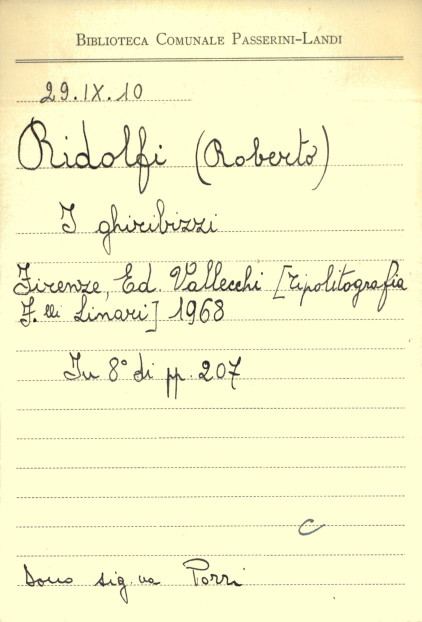 BIBLIOTECA COMUNALE PASSERINI-LANDI
29.IX.10
Ridolfi (Roberto)
I ghiribizzi
Firenze, Ed. Vallecchi [tipolitografia
F.lli Linari] 1968
In 8° di pp. 207
C
Dono sig.na Porri